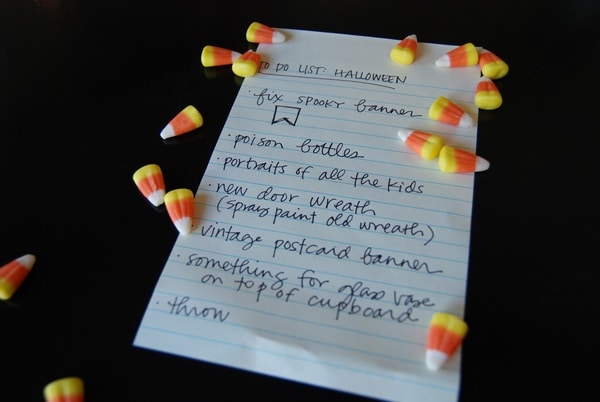 TO DO LIST: HALLOWEEN
· fix SPOOKY banner
· poison bottles
· portraits of all the kids
· new door wreath
(spray paint old wreath)
vintage postcard banner
· something for glass vase
on top of cupboard
· throw